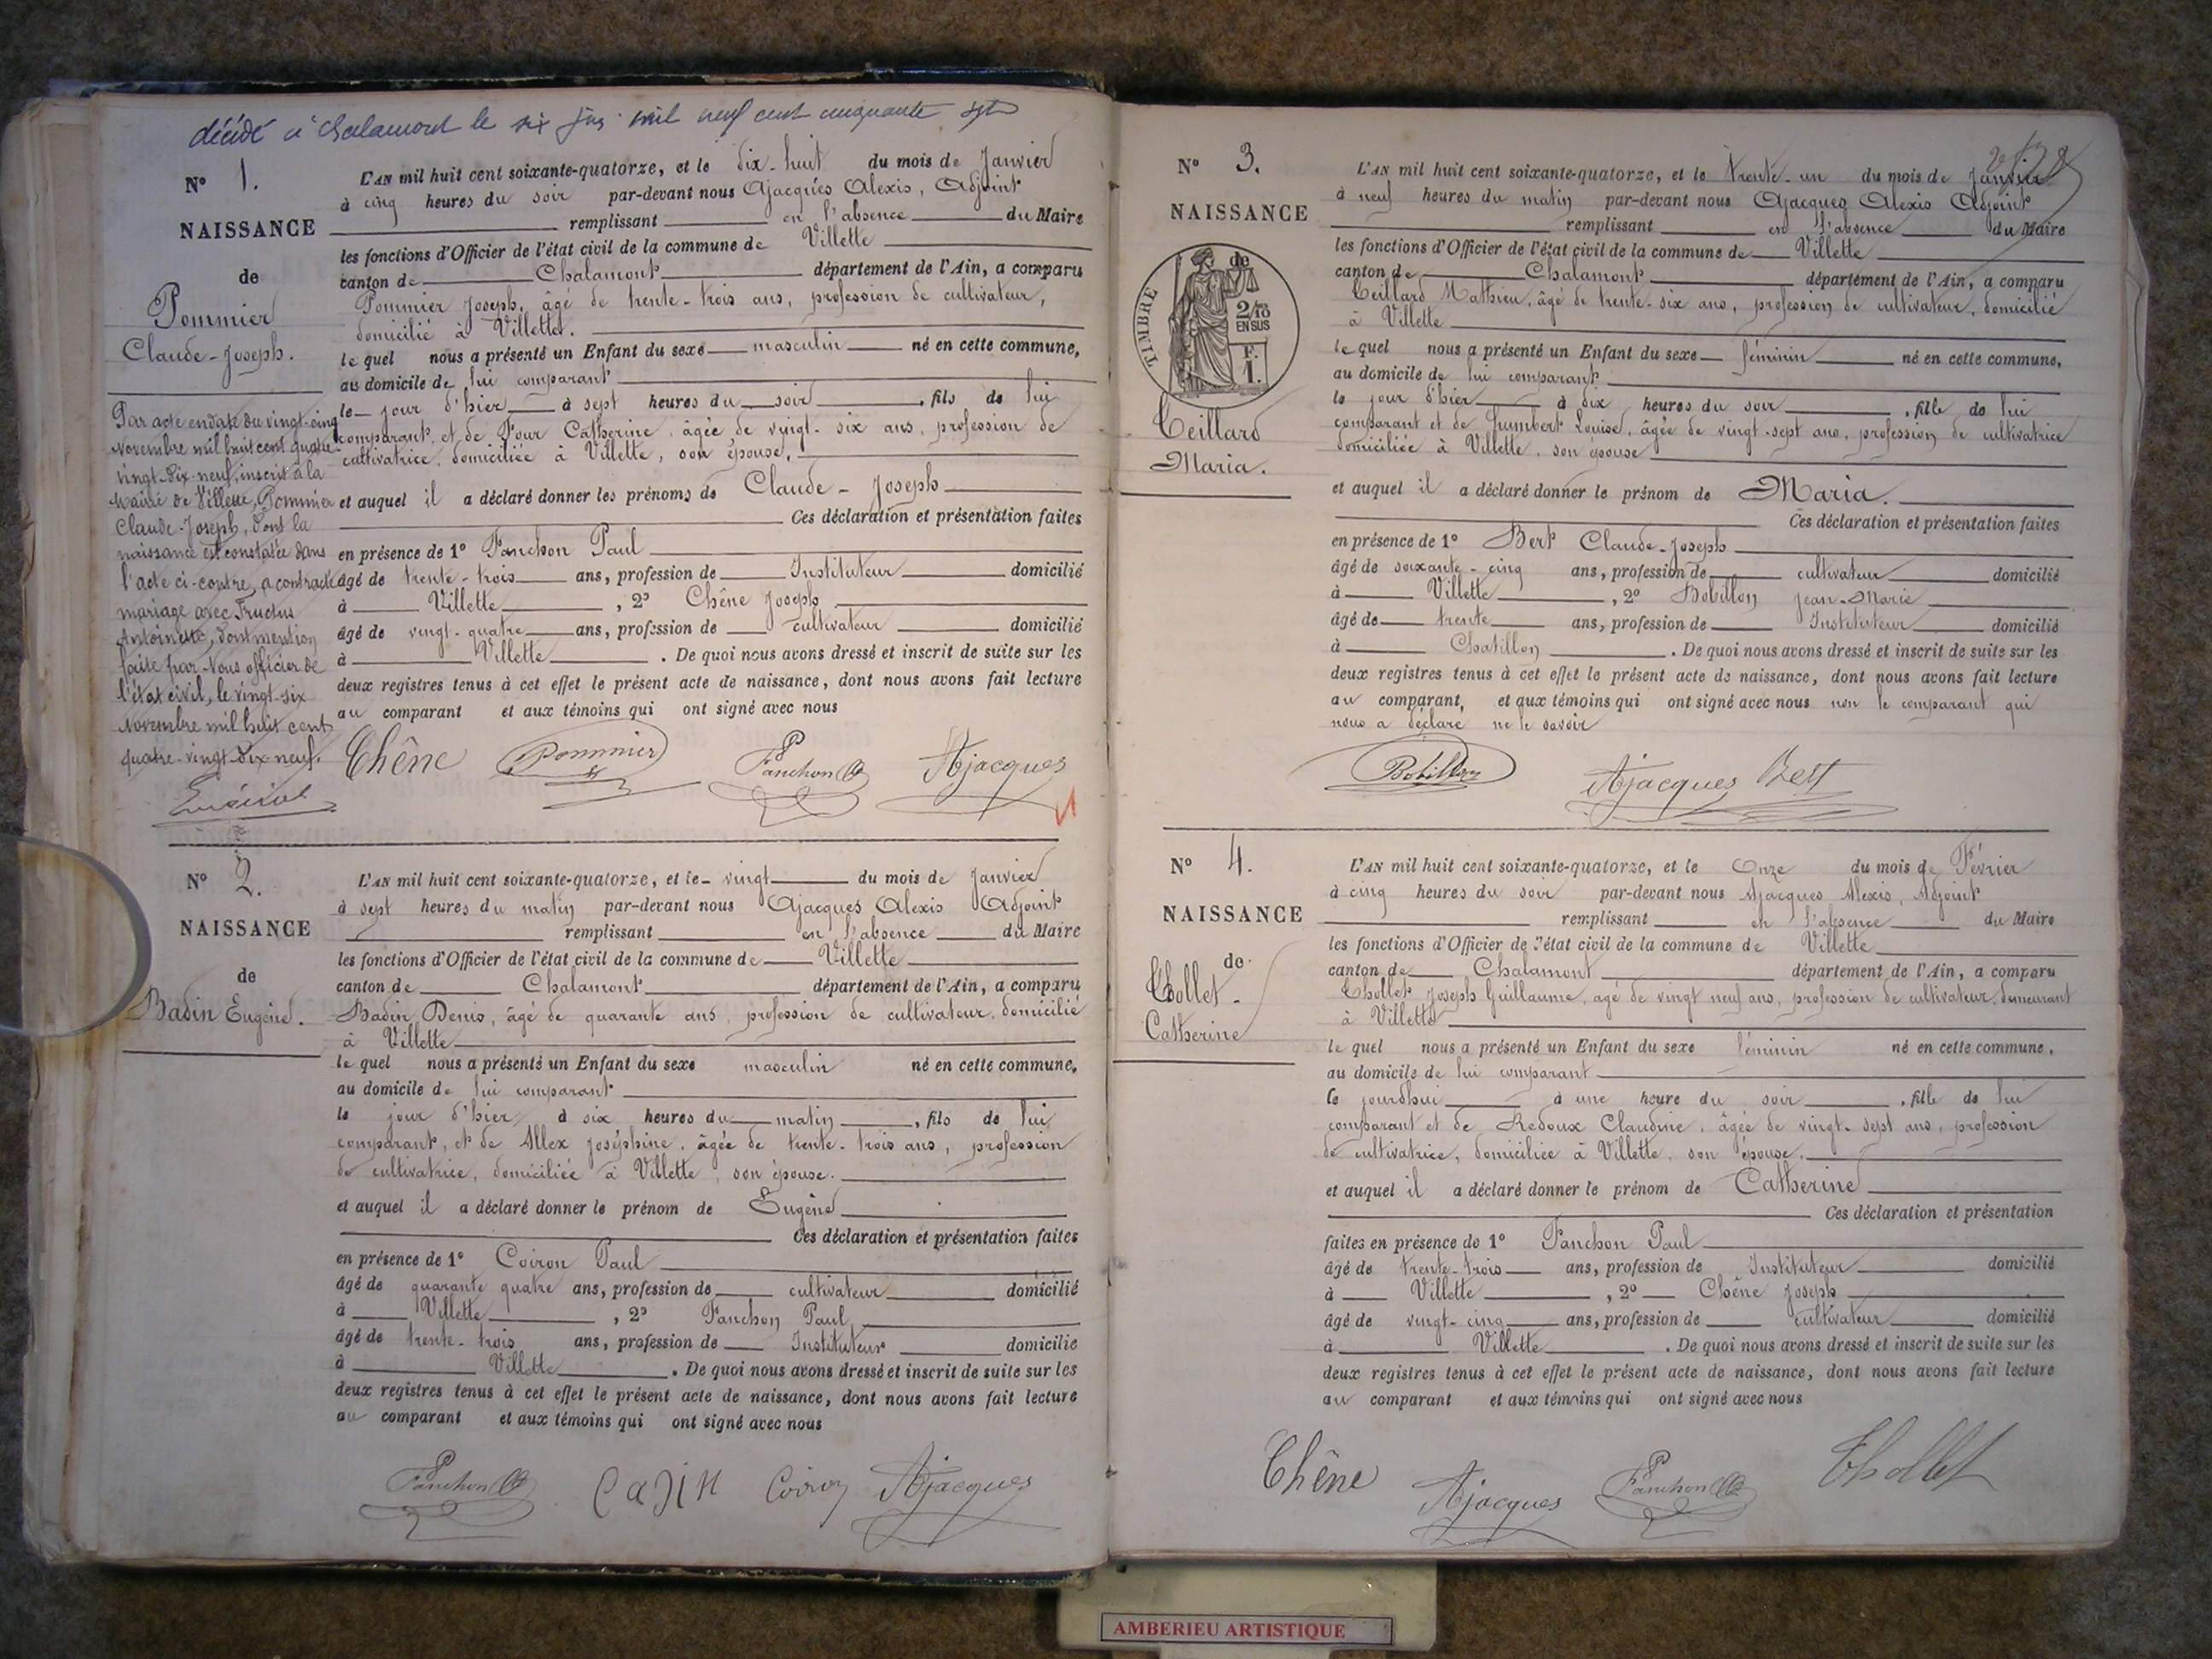 décédé à Chalamont le six mil neuf cent cinquante sept
N° 1.
NAISSANCE
de
Pommier
Claude-Joseph.
Par acte en date du vingt-cinq
Novembre mil huit cent quatre-
vingt-dix-neuf, inscrit à la
Mairie de Villette, Pommier
Claude-Joseph, dont la
naissance est constatée dans
l'acte ci-contre, a contracté
mariage avec Fructus
Antoinette, dont mention
faite par Nous officier de
l'état civil, le vingt-six
Novembre mil huit cent
quatre-vingt-dix-neuf.
L'AN mil huit cent soixante-quatorze, et le dix-huit du mois de Janvier
à cinq heures du soir par-devant nous Ajacques Alexis, Adjoint
remplissant en l'absence du Maire
les fonctions d'Officier de l'état civil de la commune de Villette
canton de Chalamont département de l'Ain, a comparu
Pommier Joseph, âgé de trente-trois ans, profession de cultivateur,
domicilié à Villette.
le quel nous a présenté un Enfant du sexe masculin né en cette commune,
au domicile de lui comparant
le jour d'hier à sept heures du soir, fils de lui
comparant, et de Four Catherine, âgée de vingt-six ans, profession de
cultivatrice, domiciliée à Villette, son épouse,
et auquel il a déclaré donner les prénoms de Claude-Joseph
Ces déclaration et présentation faites
en présence de 1° Fanchon Paul
âgé de trente-trois ans, profession de Instituteur domicilié
à Villette, 2° Chêne Joseph
âgé de vingt-quatre ans, profession de cultivateur domicilié
à Villette. De quoi nous avons dressé et inscrit de suite sur les
deux registres tenus à cet effet le présent acte de naissance, dont nous avons fait lecture
au comparant et aux témoins qui ont signé avec nous
Chêne Pommier Fanchon Ajacques
N° 2.
NAISSANCE
de
Badin Eugène.
L'AN mil huit cent soixante-quatorze, et le vingt du mois de Janvier
à sept heures du matin par-devant nous Ajacques Alexis Adjoint
remplissant en l'absence du Maire
les fonctions d'Officier de l'état civil de la commune de Villette
canton de Chalamont département de l'Ain, a comparu
Badin Denis, âgé de quarante ans, profession de cultivateur, domicilié
à Villette
le quel nous a présenté un Enfant du sexe masculin né en cette commune,
au domicile de lui comparant
le jour d'hier à six heures du matin, fils de lui
comparant, et de Allex Joséphine, âgée de trente-trois ans, profession
de cultivatrice, domiciliée à Villette, son épouse.
et auquel il a déclaré donner le prénom de Eugène
Ces déclaration et présentation faites
en présence de 1° Coiron Paul
âgé de quarante quatre ans, profession de cultivateur domicilié
à Villette, 2° Fanchon Paul
âgé de trente-trois ans, profession de Instituteur domicilié
à Villette. De quoi nous avons dressé et inscrit de suite sur les
deux registres tenus à cet effet le présent acte de naissance, dont nous avons fait lecture
au comparant et aux témoins qui ont signé avec nous
Fanchon Coiron Ajacques
N° 3.
NAISSANCE
de
TIMBRE
2/10
EN SUS
F.
1.
Teillard
Maria.
L'AN mil huit cent soixante-quatorze, et le trente-un du mois de Janvier
à neuf heures du matin par-devant nous Ajacques Alexis Adjoint
remplissant en l'absence du Maire
les fonctions d'Officier de l'état civil de la commune de Villette
canton de Chalamont département de l'Ain, a comparu
Teillard Mathieu, âgé de trente-six ans, profession de cultivateur, domicilié
à Villette
le quel nous a présenté un Enfant du sexe féminin né en cette commune,
au domicile de lui comparant
le jour d'hier à dix heures du soir, fille de lui
comparant et de Humbert Louise, âgée de vingt-sept ans, profession de cultivatrice
domiciliée à Villette, son épouse
et auquel il a déclaré donner le prénom de Maria.
Ces déclaration et présentation faites
en présence de 1° Bert Claude-Joseph
âgé de soixante-cinq ans, profession de cultivateur domicilié
à Villette, 2° Bobillon Jean-Marie
âgé de trente ans, profession de Instituteur domicilié
à Chatillon. De quoi nous avons dressé et inscrit de suite sur les
deux registres tenus à cet effet le présent acte de naissance, dont nous avons fait lecture
au comparant, et aux témoins qui ont signé avec nous non le comparant qui
nous a déclaré ne le savoir
Bobillon Ajacques Bert
N° 4.
NAISSANCE
de
Thollet
Catherine
L'AN mil huit cent soixante-quatorze, et le Onze du mois de Février
à cinq heures du soir par-devant nous Ajacques Alexis, Adjoint
remplissant en l'absence du Maire
les fonctions d'Officier de l'état civil de la commune de Villette
canton de Chalamont département de l'Ain, a comparu
Thollet Joseph Guillaume, agé de vingt neuf ans, profession de cultivateur, demeurant
à Villette
le quel nous a présenté un Enfant du sexe féminin né en cette commune,
au domicile de lui comparant
ce jourdhui à une heure du soir, fille de lui
comparant et de Redoux Claudine, âgée de vingt-sept ans, profession
de cultivatrice, domiciliée à Villette, son épouse.
et auquel il a déclaré donner le prénom de Catherine
Ces déclaration et présentation
faites en présence de 1° Fanchon Paul
âgé de trente-trois ans, profession de Instituteur domicilié
à Villette, 2° Chêne Joseph
âgé de vingt-cinq ans, profession de cultivateur domicilié
à Villette. De quoi nous avons dressé et inscrit de suite sur les
deux registres tenus à cet effet le présent acte de naissance, dont nous avons fait lecture
au comparant et aux témoins qui ont signé avec nous
Chêne Ajacques Fanchon Thollet
AMBERIEU ARTISTIQUE